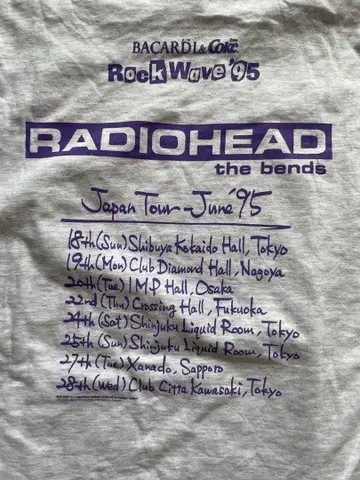 BACARDI & Coke
Rock Wave '95
RADIOHEAD
the bends
Japan Tour - June '95
18th (Sun) Shibuya Kokaido Hall, Tokyo
19th (Mon) Club Diamond Hall, Nagoya
20th (Tue) I.M.P Hall, Osaka
22nd (Thu) Crossing Hall, Fukuoka
24th (Sat) Shinjuku Liquid Room, Tokyo
25th (Sun) Shinjuku Liquid Room, Tokyo
27th (Tue) Xanado, Sapporo
28th (Wed) Club Citta Kawasaki, Tokyo